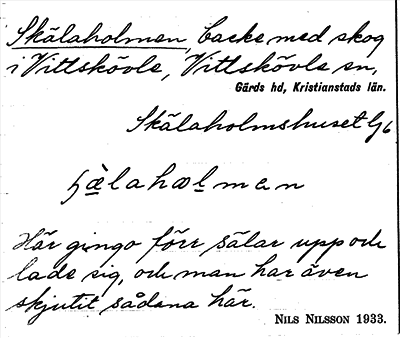 Skälaholmen, backe med skog
i Vittskövle, Vittskövle sn,
Gärds hd, Kristianstads län.
Skälaholmshuset Gb
hæ̀lahoḻmen
Här gingo förr sälar upp och
lade sig, och man har även
skjutit sådana här.
NILS NILSSON 1933.